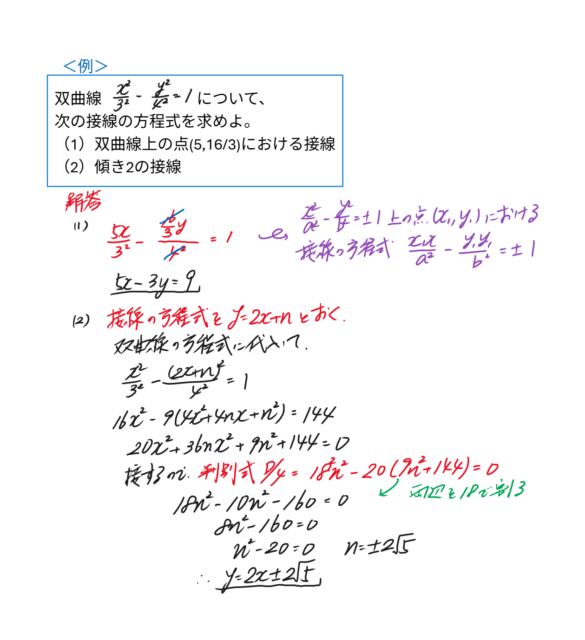 ＜例＞
双曲線 x²/3² - y²/4² = 1 について、
次の接線の方程式を求めよ。
（1）双曲線上の点(5,16/3)における接線
（2）傾き2の接線
解答
(1) 5x/3² - (16/3)y/4² = 1
x²/a² - y²/b² = ±1 上の点 (x₁, y₁) における
接線の方程式 x₁x/a² - y₁y/b² = ±1
5x - 3y = 9
(2) 接線の方程式を y=2x+n とおく.
双曲線の方程式に代入して.
x²/3² - (2x+n)²/4² = 1
16x² - 9(4x²+4nx+n²) = 144
20x² + 36nx² + 9n² + 144 = 0
接するので. 判別式 D/4 = 18²n² - 20(9n²+144) = 0
両辺を18で割る
18n² - 10n² - 160 = 0
8n² - 160 = 0
n² - 20 = 0 n = ±2√5
∴ y = 2x ± 2√5